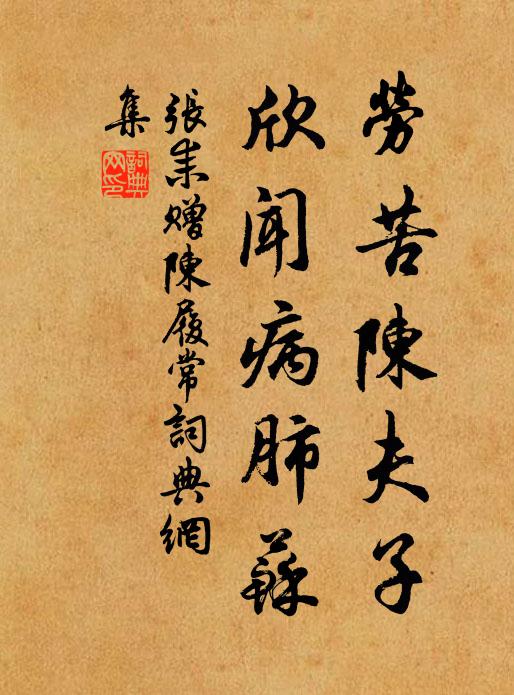 勞苦陳夫子
欣聞病肺蘇
張耒贈陳履常詞典網
集
詞典網印